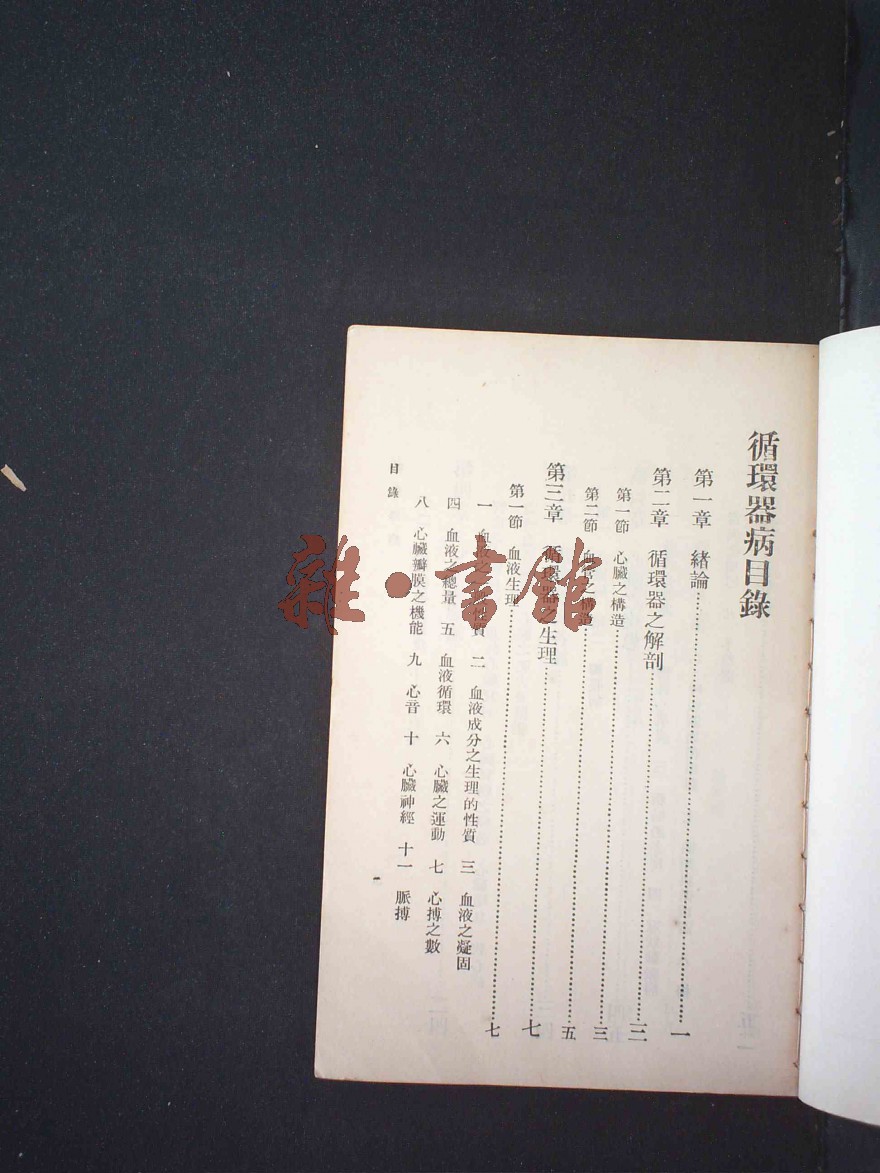 循環器病目錄
第一章　緒論……一
第二章　循環器之解剖……三
第一節　心臟之構造……三
第二節　血管之構造……五
第三章　循環器之生理……七
第一節　血液生理……七
一　血液之　　性質　二　血液成分之生理的性質　三　血液之凝固
四　血液之總量　五　血液循環　六　心臟之運動　七　心搏之數
八　心臟瓣膜之機能　九　心音　十　心臟神經　十一　脈搏
目錄
雜·書館